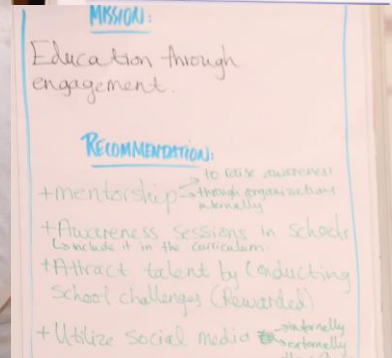 MISSION:
Education through
engagement.
RECOMMENDATION:
to raise awareness
+mentorship → through organizations
internally
+Awareness sessions in schools
↳ include it in the curriculum.
+Attract talent by Conducting
School challenges (Rewarded)
+Utilize social media → internally
→ externally